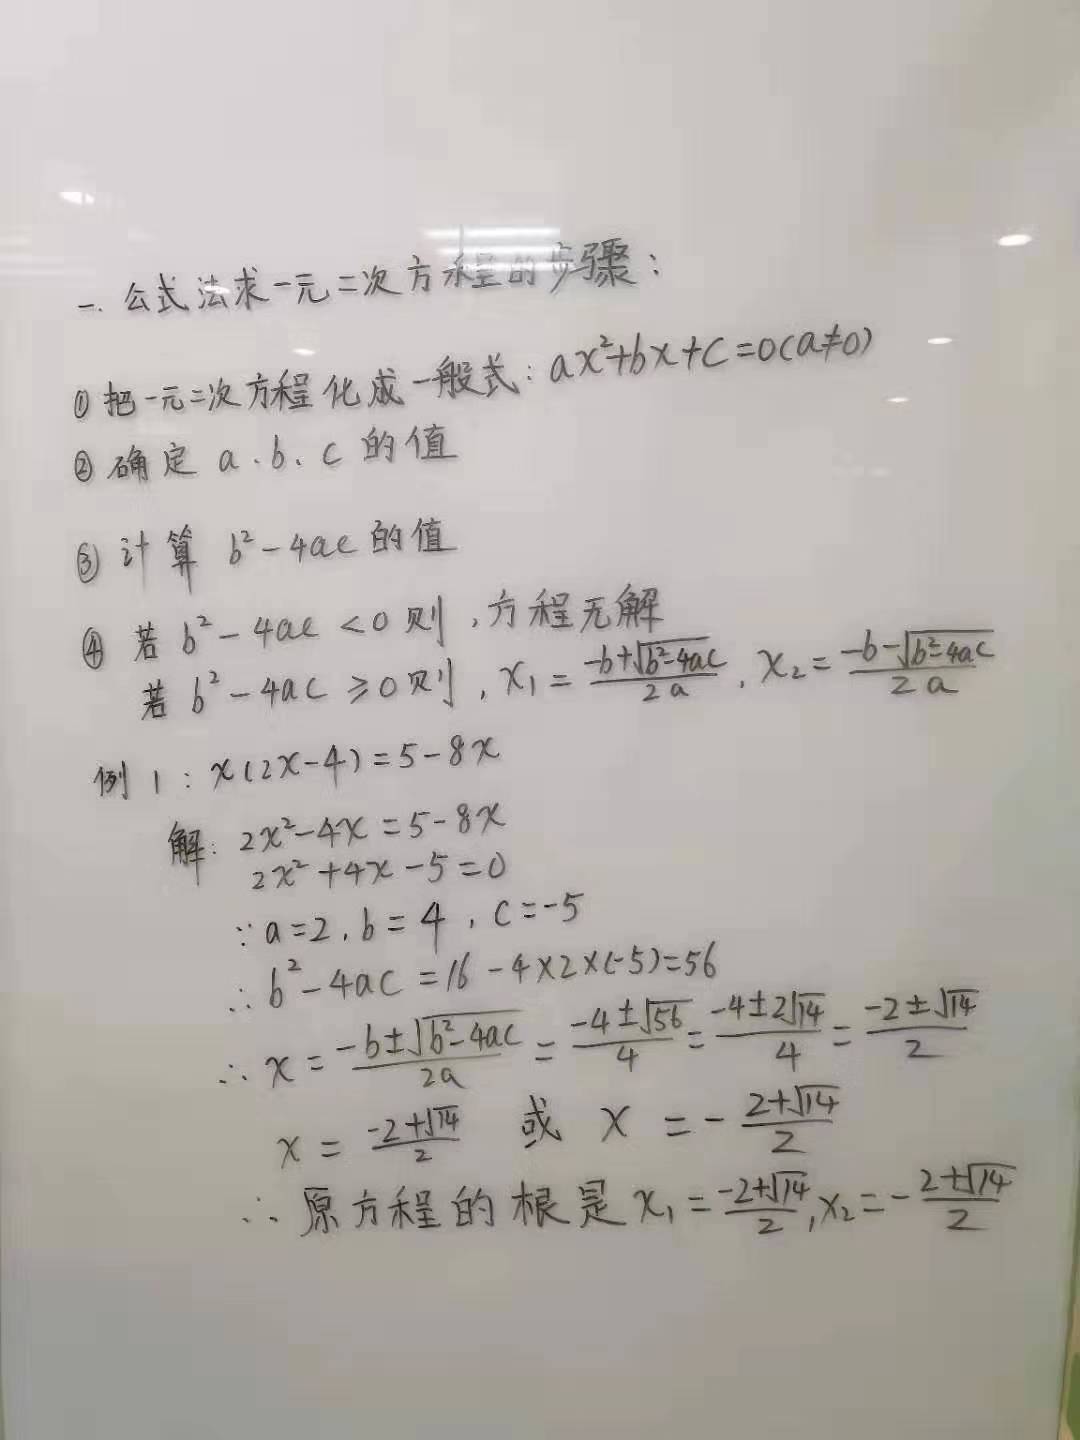 一. 公式法求一元二次方程的步骤：
① 把一元二次方程化成一般式：ax²+bx+c=0(a≠0)
② 确定 a、b、c 的值
③ 计算 b²-4ac 的值
④ 若 b²-4ac <0 则，方程无解
若 b²-4ac ≥0 则，x₁=(-b+√(b²-4ac))/(2a)，x₂=(-b-√(b²-4ac))/(2a)
例1：x(2x-4)=5-8x
解：2x²-4x=5-8x
2x²+4x-5=0
∵ a=2，b=4，c=-5
∴ b²-4ac=16-4×2×(-5)=56
∴ x=(-b±√(b²-4ac))/(2a)=(-4±√56)/4=(-4±2√14)/4=(-2±√14)/2
x=(-2+√14)/2 或 x=-(2+√14)/2
∴ 原方程的根是 x₁=(-2+√14)/2，x₂=-(2+√14)/2